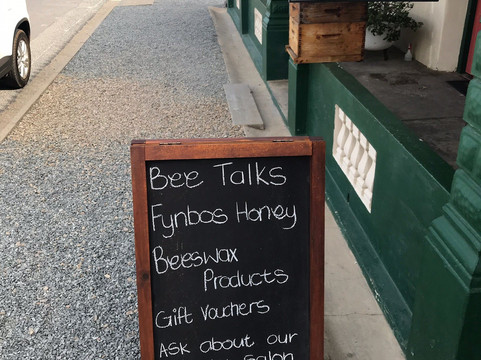 Bee Talks
Fynbos Honey
Beeswax
Products
Gift Vouchers
Ask about our
Salon